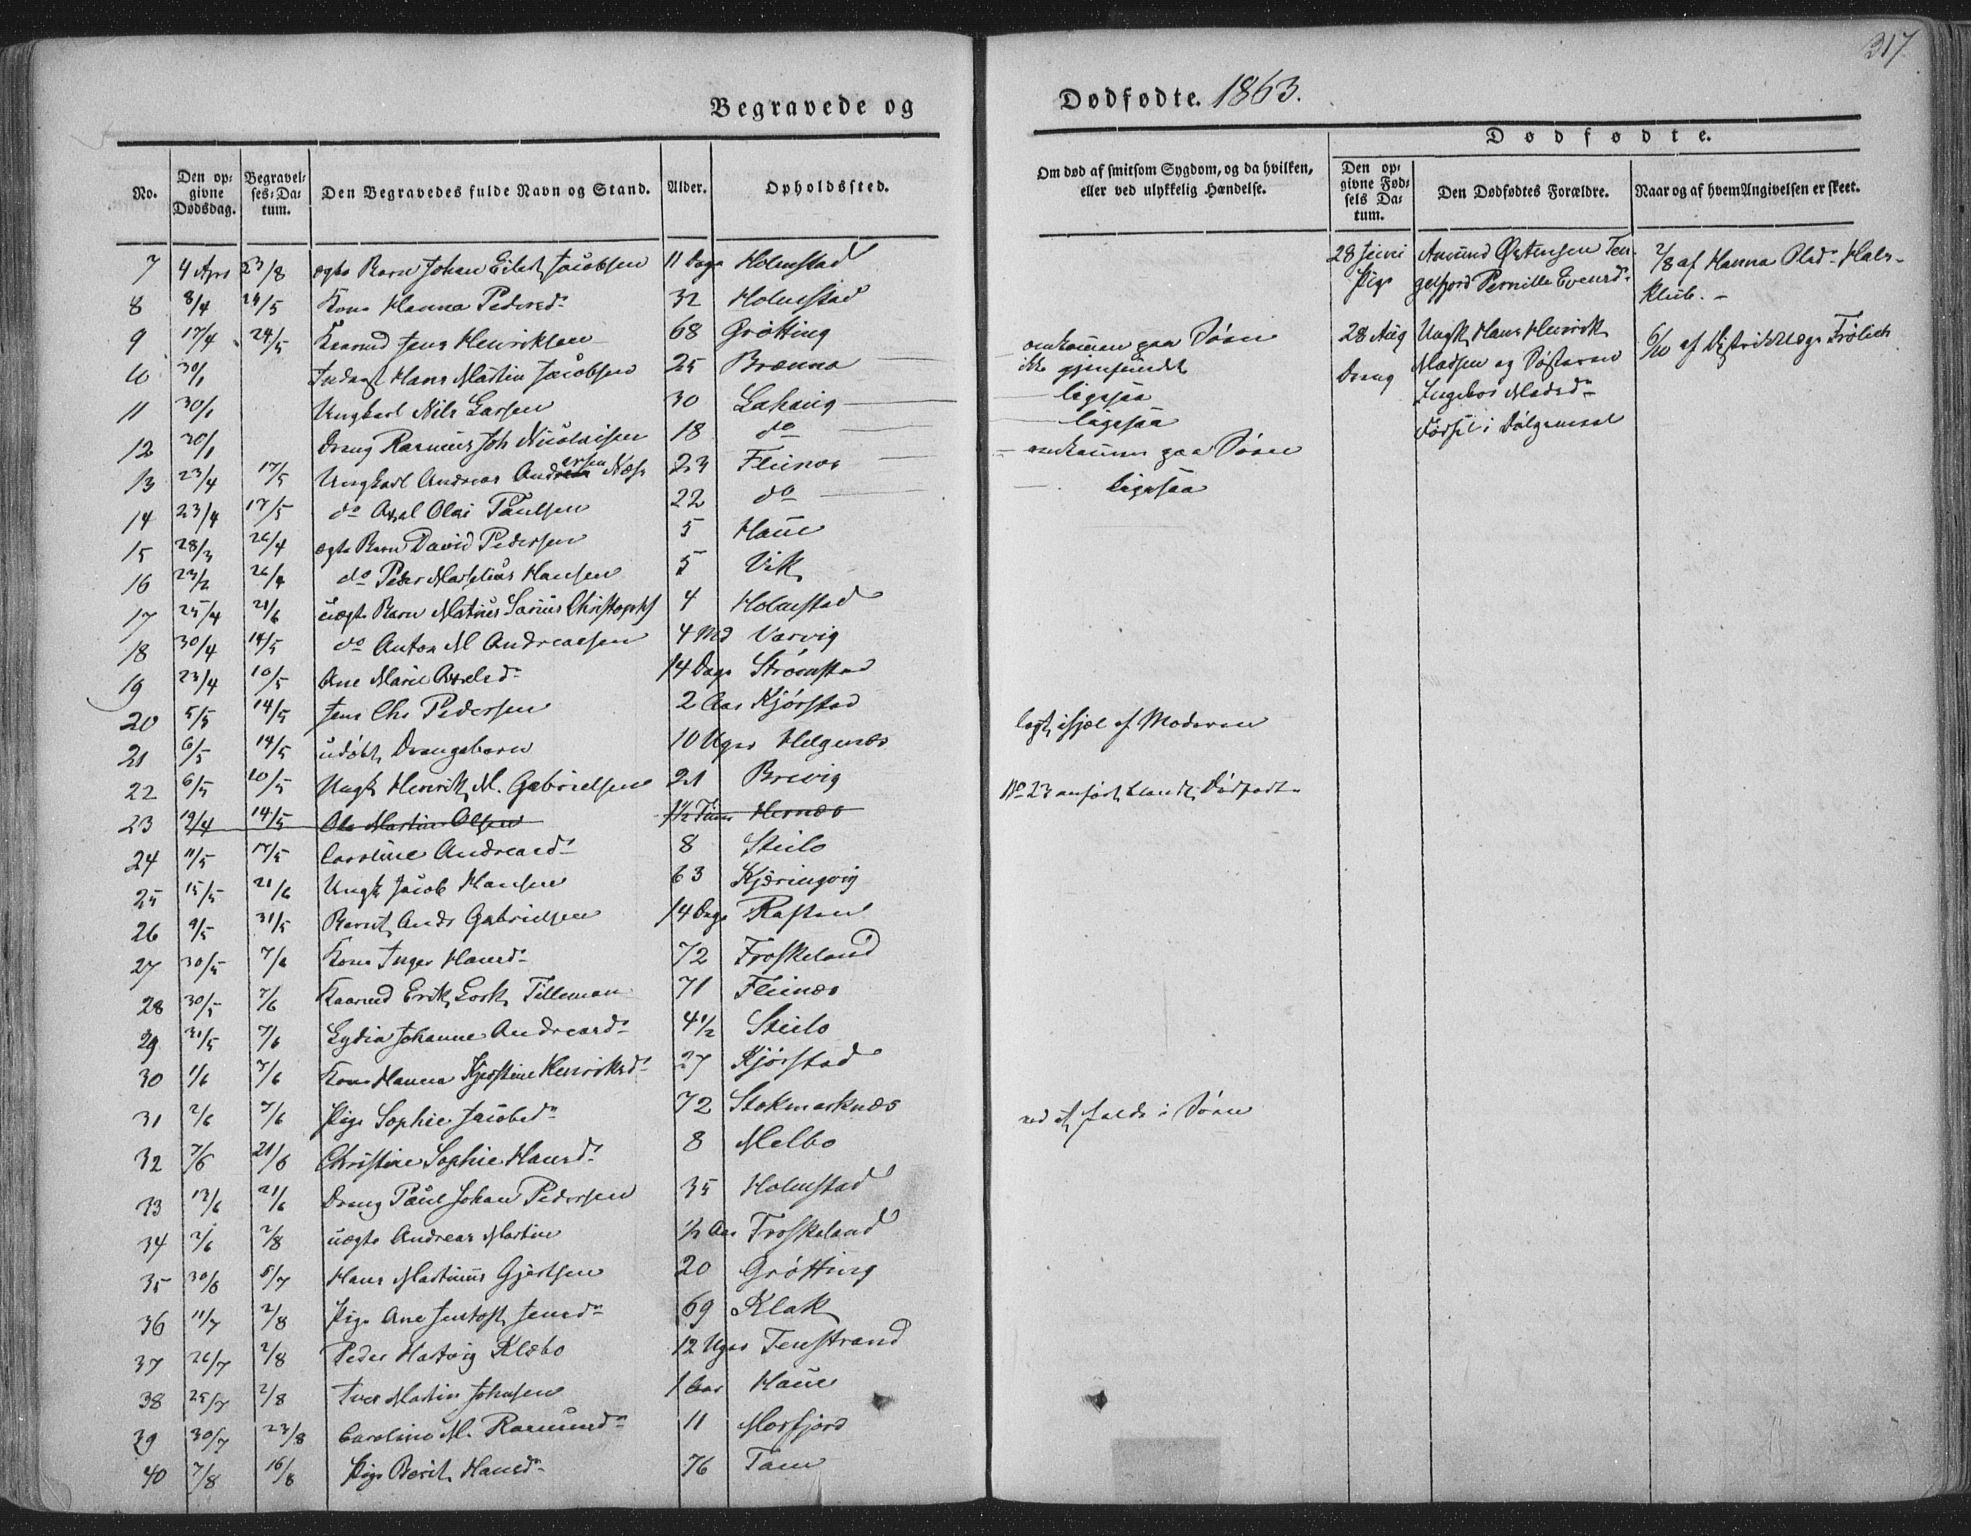 317
Begravede og
Dødfødte. 1863.
No.
Den opgivne Dødsdag.
Begravelses-Datum.
Den Begravedes fulde Navn og Stand.
Alder.
Opholdssted.
Om død af smitsom Sygdom, og da hvilken, eller ved ulykkelig Hændelse.
Dødfødte.
Den opgivne Fødsels Datum.
Den Dødfødtes Forældre.
Naar og af hvem Angivelsen er skeet.
7 4 Apr 23/8 ægte Barn Johan Eilert Jacobsen 11 Dage Holmstad
8 8/4 24/5 Kone Hanna Pedersd. 32 Holmstad
9 17/4 24/5 Kaarmd Jens Henriksen 68 Grøtting
10 30/1 Inderst Hans Martin Jacobsen 25 Brænna omkommen paa Søen ikke gjenfundet
11 30/1 Ungkarl Nils Larsen 30 ligesaa
12 30/1 Dreng Rasmus Joh Nicolaisen 18 do ligesaa
13 23/4 17/5 Ungkarl Andreas Andersen Næss 23 Fleines omkommen paa Søen
14 23/4 17/5 do Axel Olai Paulsen 22 do ligesaa
15 28/3 26/4 ægte Barn David Pedersen 5 Haue
16 23/2 26/4 do Peder Martinus Hansen 5 Vik
17 25/4 21/6 uægte Barn Matius Sarius Christophs 4 Holmstad
18 30/4 14/5 do Anton M Andreasen 4 Md Varvig
19 23/4 10/5 Ane Marie Axelsd. 14 Dage Strømstad
20 5/5 14/5 Jens Chr Pedersen 2 Aar Kjørstad
21 6/5 14/5 udøbt Drengebarn 10 Uger Helgenes lagt ihjæl af Moderen
22 6/5 10/5 Ungk Henrik M. Gabrielsen 21 Brevig
23 19/4 14/5 Ole Martin Olsen 1½ Time Hernæs No 23 anført blandt Dødfødte
24 11/5 17/5 Caroline Andreasd. 8 Steilo
25 15/5 21/6 Ungk Jacob Hansen 63 Kjæringvig
26 9/5 31/5 Bernt Ands Gabrielsen 14 Dage Raften
27 30/5 7/6 Kone Inger Hansd. 72 Froskeland
28 30/5 7/6 Kaarmd Erik Lork Tilleman 71 Fleines
29 31/5 7/6 Lydia Johanne Andreasd. 4½ Steilo
30 1/6 7/6 Kone Hanna Kjerstine Henriksd. 27 Kjørstad
31 2/6 7/6 Pige Sophie Jacobsd. 72 Stokmarknæs
32 7/6 21/6 Christine Sophie Hansd. 8 Melbo ved at falde i Søen
33 13/6 21/6 Dreng Paul Johan Pedersen 35 Holmstad
34 2/6 2/8 uægte Andreas Martin ½ Aar Froskeland
35 30/6 5/7 Hans Martinus Gjertsen 20 Grøtting
36 11/7 2/8 Pige Ane Jentoft Jensd. 69 Klak
37 26/7 2/8 Peder Hartvig Klæbo 12 Uger Tenstrand
38 25/7 2/8 Iver Martin Johnsen 1 Aar Haue
39 30/7 23/8 Caroline M. Rasmusd. 11 Morfjord
40 7/8 16/8 Pige Berit Hansd. 76 Tam
28 Juni Pige
Amund Østensen Tengelfjord Pernille Evensd.
2/8 af Hanna Halsklub.
28 Aug Dreng
Ungk Hans Henrik Madsen og Søsteren Ingebor Madsd. Fødsel i Dølgsmaal
6/10 af Distriktslæge Frølich